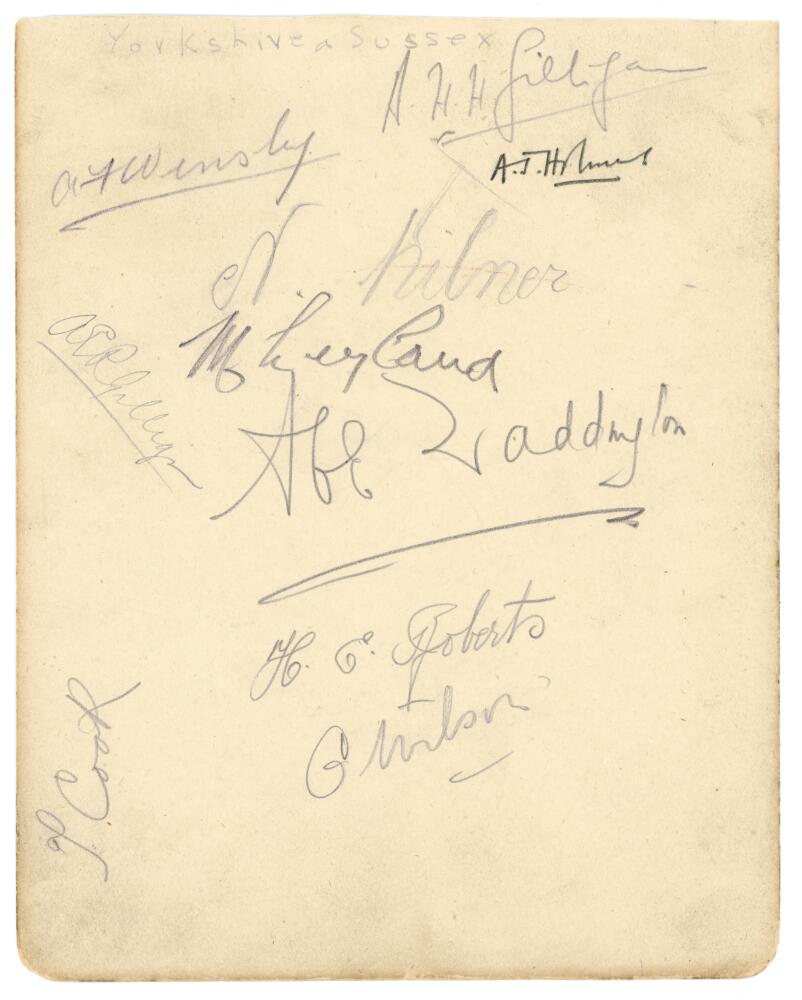 Yorkshire a Sussex
A. H. H. Gilligan
A. J. Holmes
A F Wensley
N. Kilner
M Leyland
A E R Gilligan
Abe Waddington
H. E. Roberts
G Wilson
T. Cook